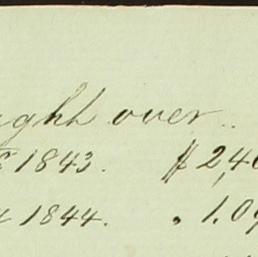 ught over..
1843. $2,4
1844. " 1.0